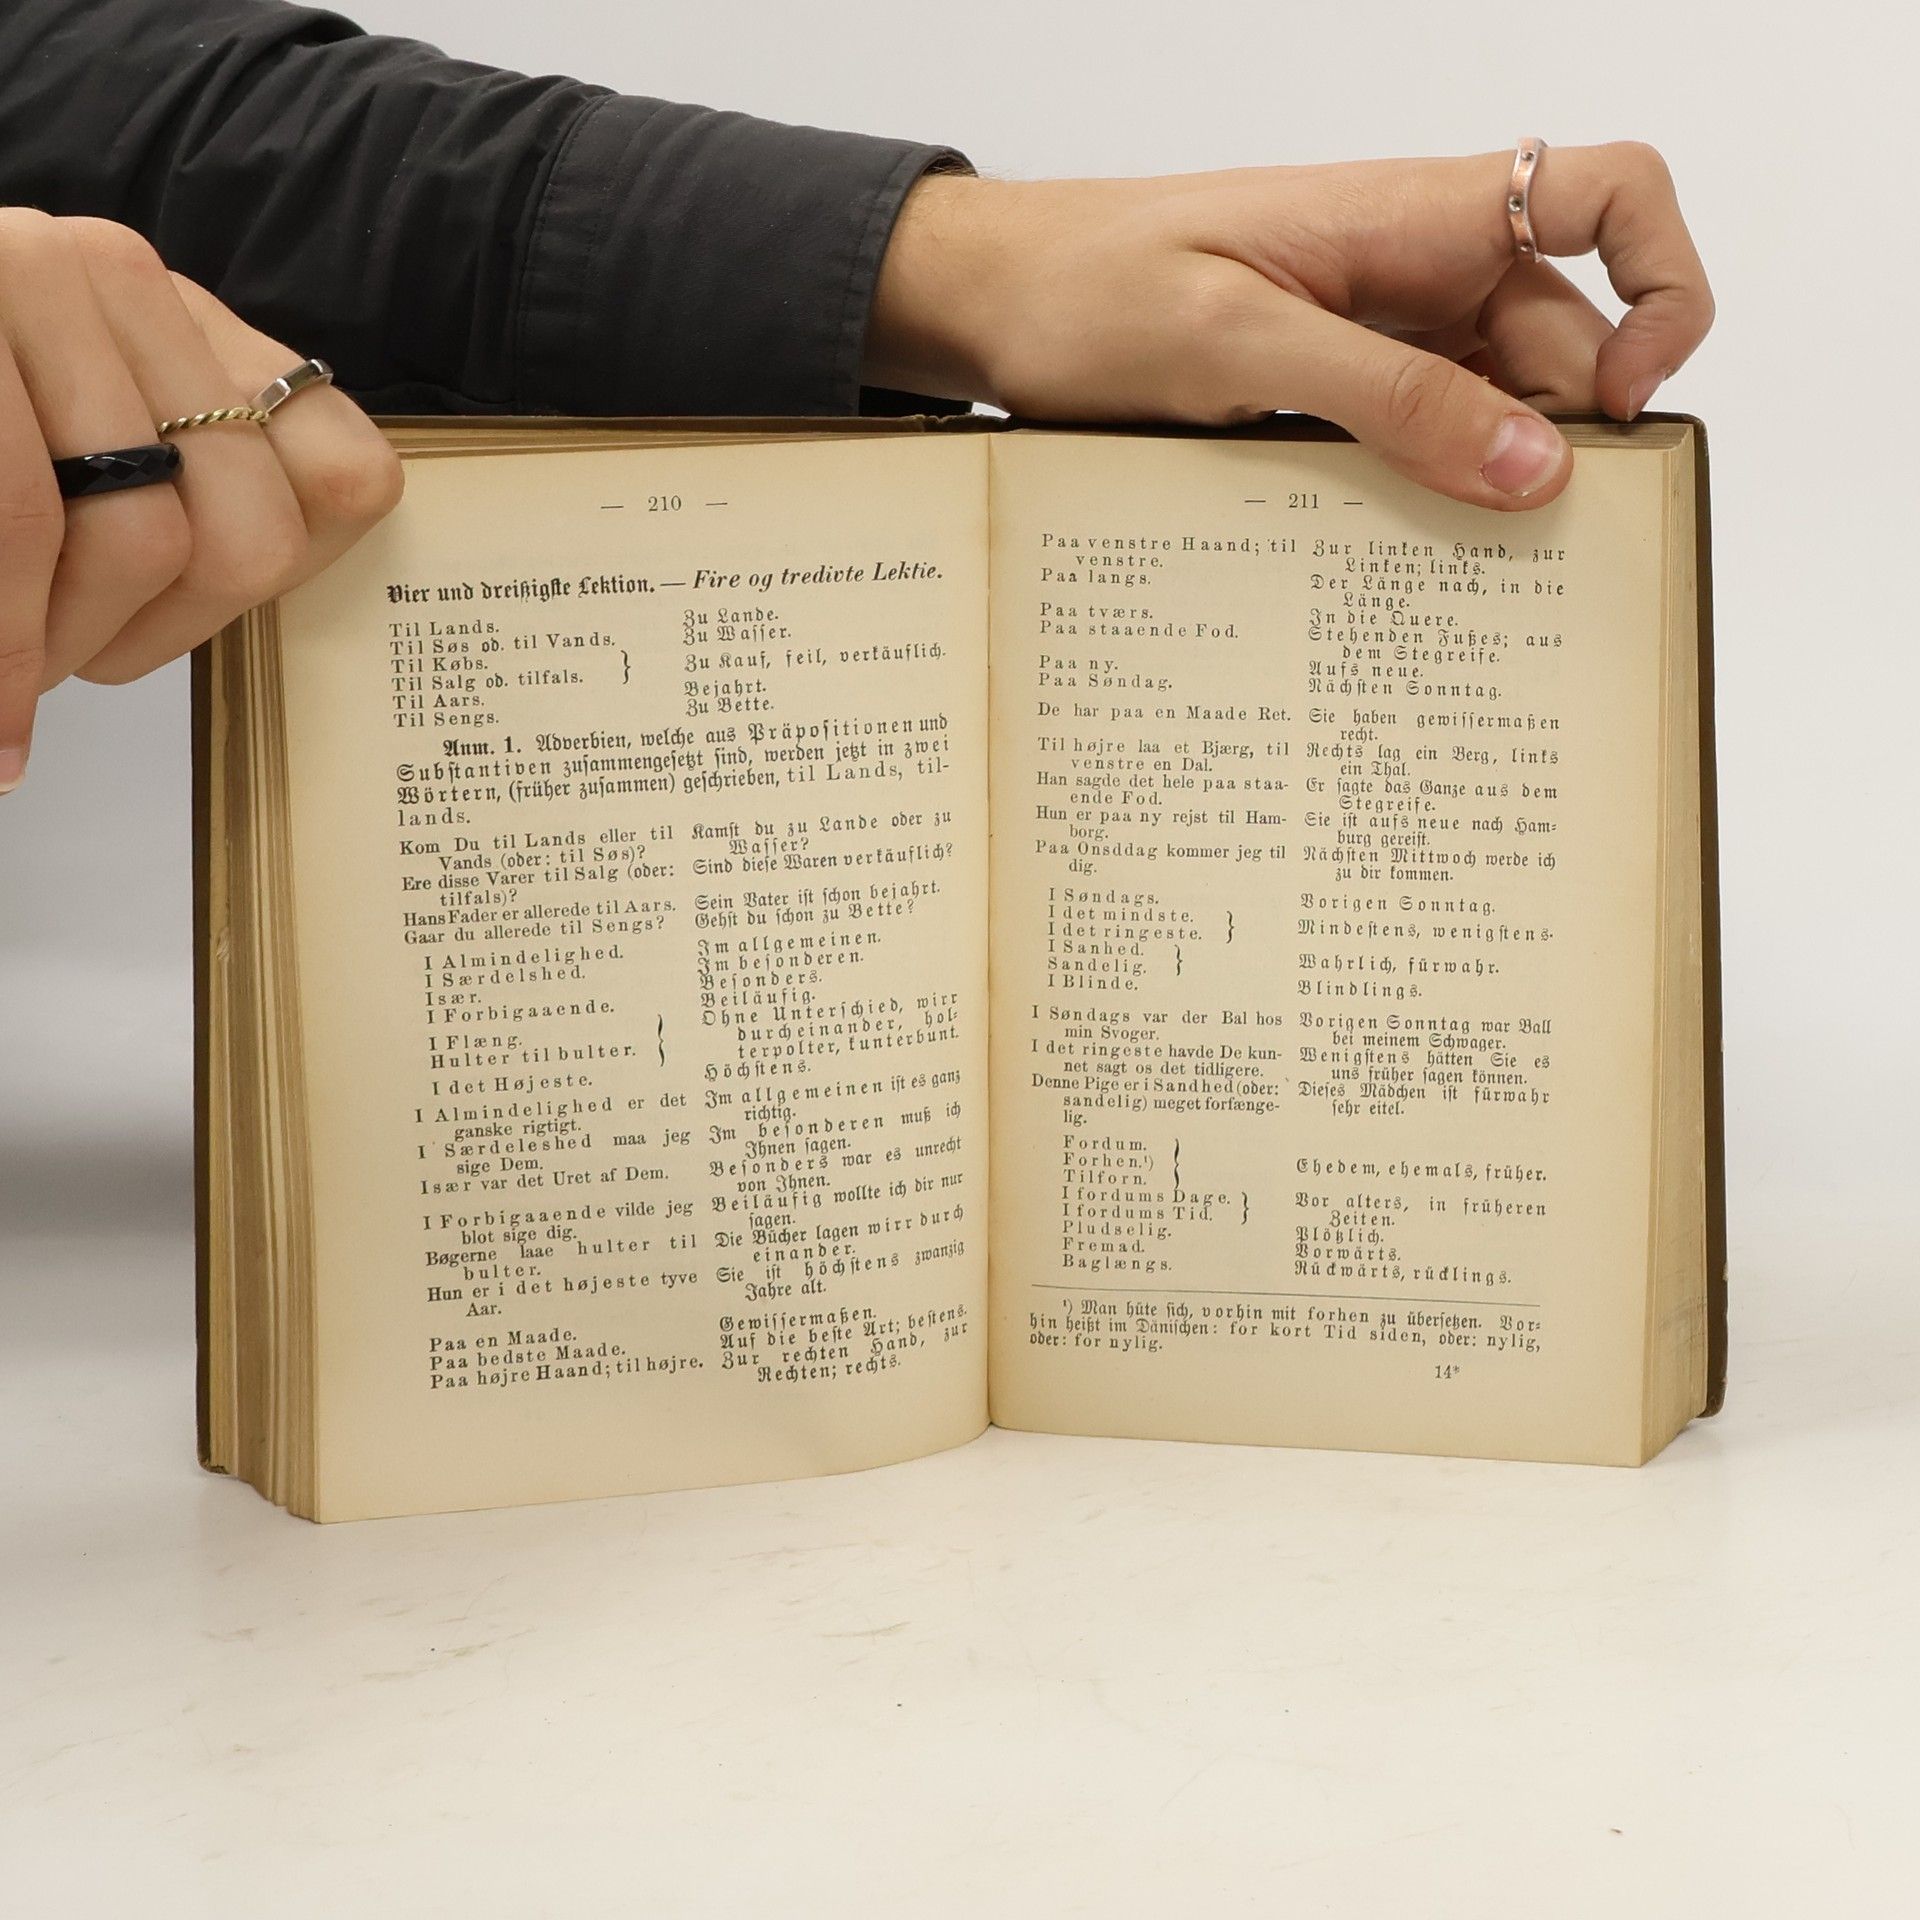 — 210 —
Vier und dreißigste Lektion. — Fire og tredivte Lektie.
Til Lands. Zu Lande.
Til Søs od. til Vands. Zu Wasser.
Til Købs. } Zu Kauf, feil, verkäuflich.
Til Salg od. tilfals.
Til Aars. Bejahrt.
Til Sengs. Zu Bette.
Anm. 1. Adverbien, welche aus Präpositionen und
Substantiven zusammengesetzt sind, werden jetzt in zwei
Wörtern, (früher zusammen) geschrieben, til Lands, til-
lands.
Kom Du til Lands eller til Kamst du zu Lande oder zu
Vands (oder: til Søs)? Wasser?
Ere disse Varer til Salg (oder: Sind diese Waren verkäuflich?
tilfals)?
Hans Fader er allerede til Aars. Sein Vater ist schon bejahrt.
Gaar du allerede til Sengs? Gehst du schon zu Bette?
I Almindelighed. Im allgemeinen.
I Særdelshed. Im besonderen.
Især. Besonders.
I Forbigaaende. Beiläufig.
I Flæng. } Ohne Unterschied, wirr
Hulter til bulter. durcheinander, hol-
terpolter, kunterbunt.
I det Højeste. Höchstens.
I Almindelighed er det Im allgemeinen ist es ganz
ganske rigtigt. richtig.
I Særdeleshed maa jeg Im besonderen muß ich
sige Dem. Ihnen sagen.
Især var det Uret af Dem. Besonders war es unrecht
von Ihnen.
I Forbigaaende vilde jeg Beiläufig wollte ich dir nur
blot sige dig. sagen.
Bøgerne laae hulter til Die Bücher lagen wirr durch
bulter. einander.
Hun er i det højeste tyve Sie ist höchstens zwanzig
Aar. Jahre alt.
Paa en Maade. Gewissermaßen.
Paa bedste Maade. Auf die beste Art; bestens.
Paa højre Haand; til højre. Zur rechten Hand, zur
Rechten; rechts.
— 211 —
Paa venstre Haand; til Zur linken Hand, zur
venstre. Linken; links.
Paa langs. Der Länge nach, in die
Länge.
Paa tværs. In die Quere.
Paa staaende Fod. Stehenden Fußes; aus
dem Stegreife.
Paa ny. Aufs neue.
Paa Søndag. Nächsten Sonntag.
De har paa en Maade Ret. Sie haben gewissermaßen
recht.
Til højre laa et Bjærg, til Rechts lag ein Berg, links
venstre en Dal. ein Thal.
Han sagde det hele paa staa- Er sagte das Ganze aus dem
ende Fod. Stegreife.
Hun er paa ny rejst til Ham- Sie ist aufs neue nach Ham-
borg. burg gereist.
Paa Onsddag kommer jeg til Nächsten Mittwoch werde ich
dig. zu dir kommen.
I Søndags. Vorigen Sonntag.
I det mindste. } Mindestens, wenigstens.
I det ringeste.
I Sanhed. } Wahrlich, fürwahr.
Sandelig.
I Blinde. Blindlings.
I Søndags var der Bal hos Vorigen Sonntag war Ball
min Svoger. bei meinem Schwager.
I det ringeste havde De kun- Wenigstens hätten Sie es
net sagt os det tidligere. uns früher sagen können.
Denne Pige er i Sandhed (oder: Dieses Mädchen ist fürwahr
sandelig) meget forfænge- sehr eitel.
lig.
Fordum. } Ehedem, ehemals, früher.
Forhen.¹)
Tilforn.
I fordums Dage. } Vor alters, in früheren
I fordums Tid. Zeiten.
Pludselig. Plötzlich.
Fremad. Vorwärts.
Baglængs. Rückwärts, rücklings.
¹) Man hüte sich, vorhin mit forhen zu übersetzen. Vor-
hin heißt im Dänischen: for kort Tid siden, oder: nylig,
oder: for nylig.
14*